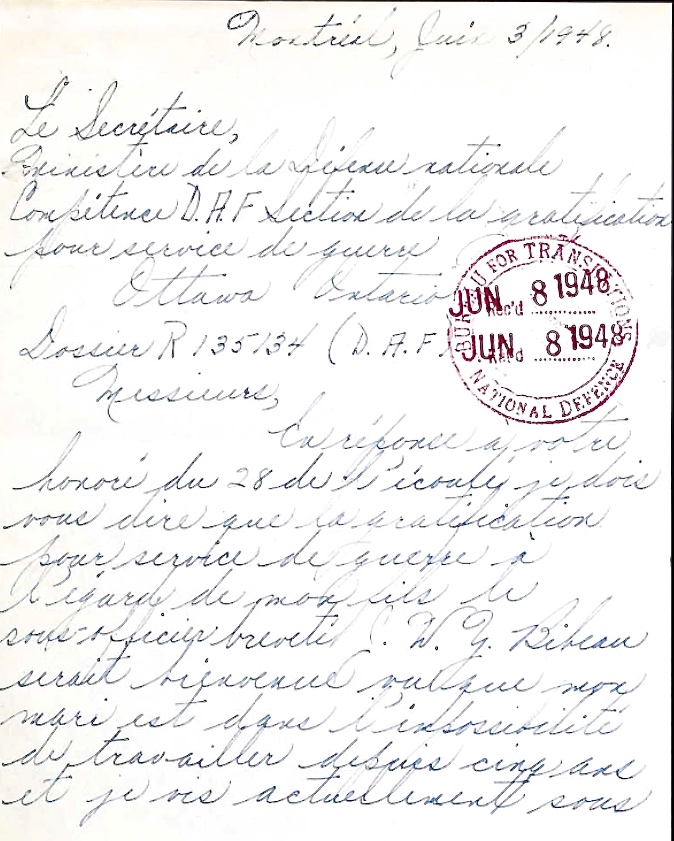 Montréal, Juin 3/1948.
Le Secrétaire,
Ministère de la Défense nationale
Compétence D.A.F Section de la gratification
pour service de guerre
Ottawa Ontario
BUREAU FOR TRANSLATIONS
JUN 8 1948
Rec'd
JUN 8 1948
Ret'd
NATIONAL DEFENCE
Dossier R 135134 (D.A.F.)
Messieurs,
En réponse a votre
honoré du 28 de l'écoulé je dois
vous dire que la gratification
pour service de guerre à
l'égard de mon fils le
sous-officier breveté W. G. Bibeau
serait bienvenue vu que mon
mari est dans l'impossibilité
de travailler depuis cinq ans
et je vis actuellement sous